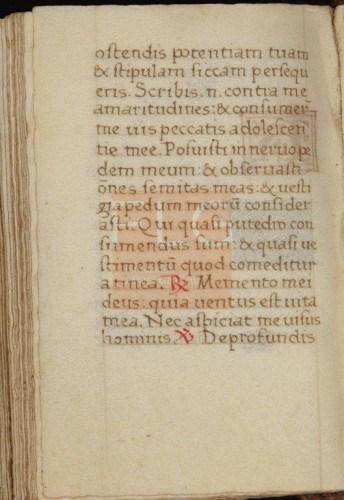 ostendis potentiam tuam
& stipulam siccam persequ
eris. Scribis .n. contra me
amaritudines: & consumer̄
me uis peccatis adolescen
tie mee. Posuisti in neruo pe
dem meum: & obseruasti
ōnes semitas meas: & uesti
gia pedum meorū consider
asti. Qui quasi putedin̄ con
sumendus sum: & quasi ue
stimentū quod comeditur
a tinea. ℟ Memento mei
deus: quia uentus est uita
mea. Nec aspiciat me uisus
hominis. ℣ De profundis